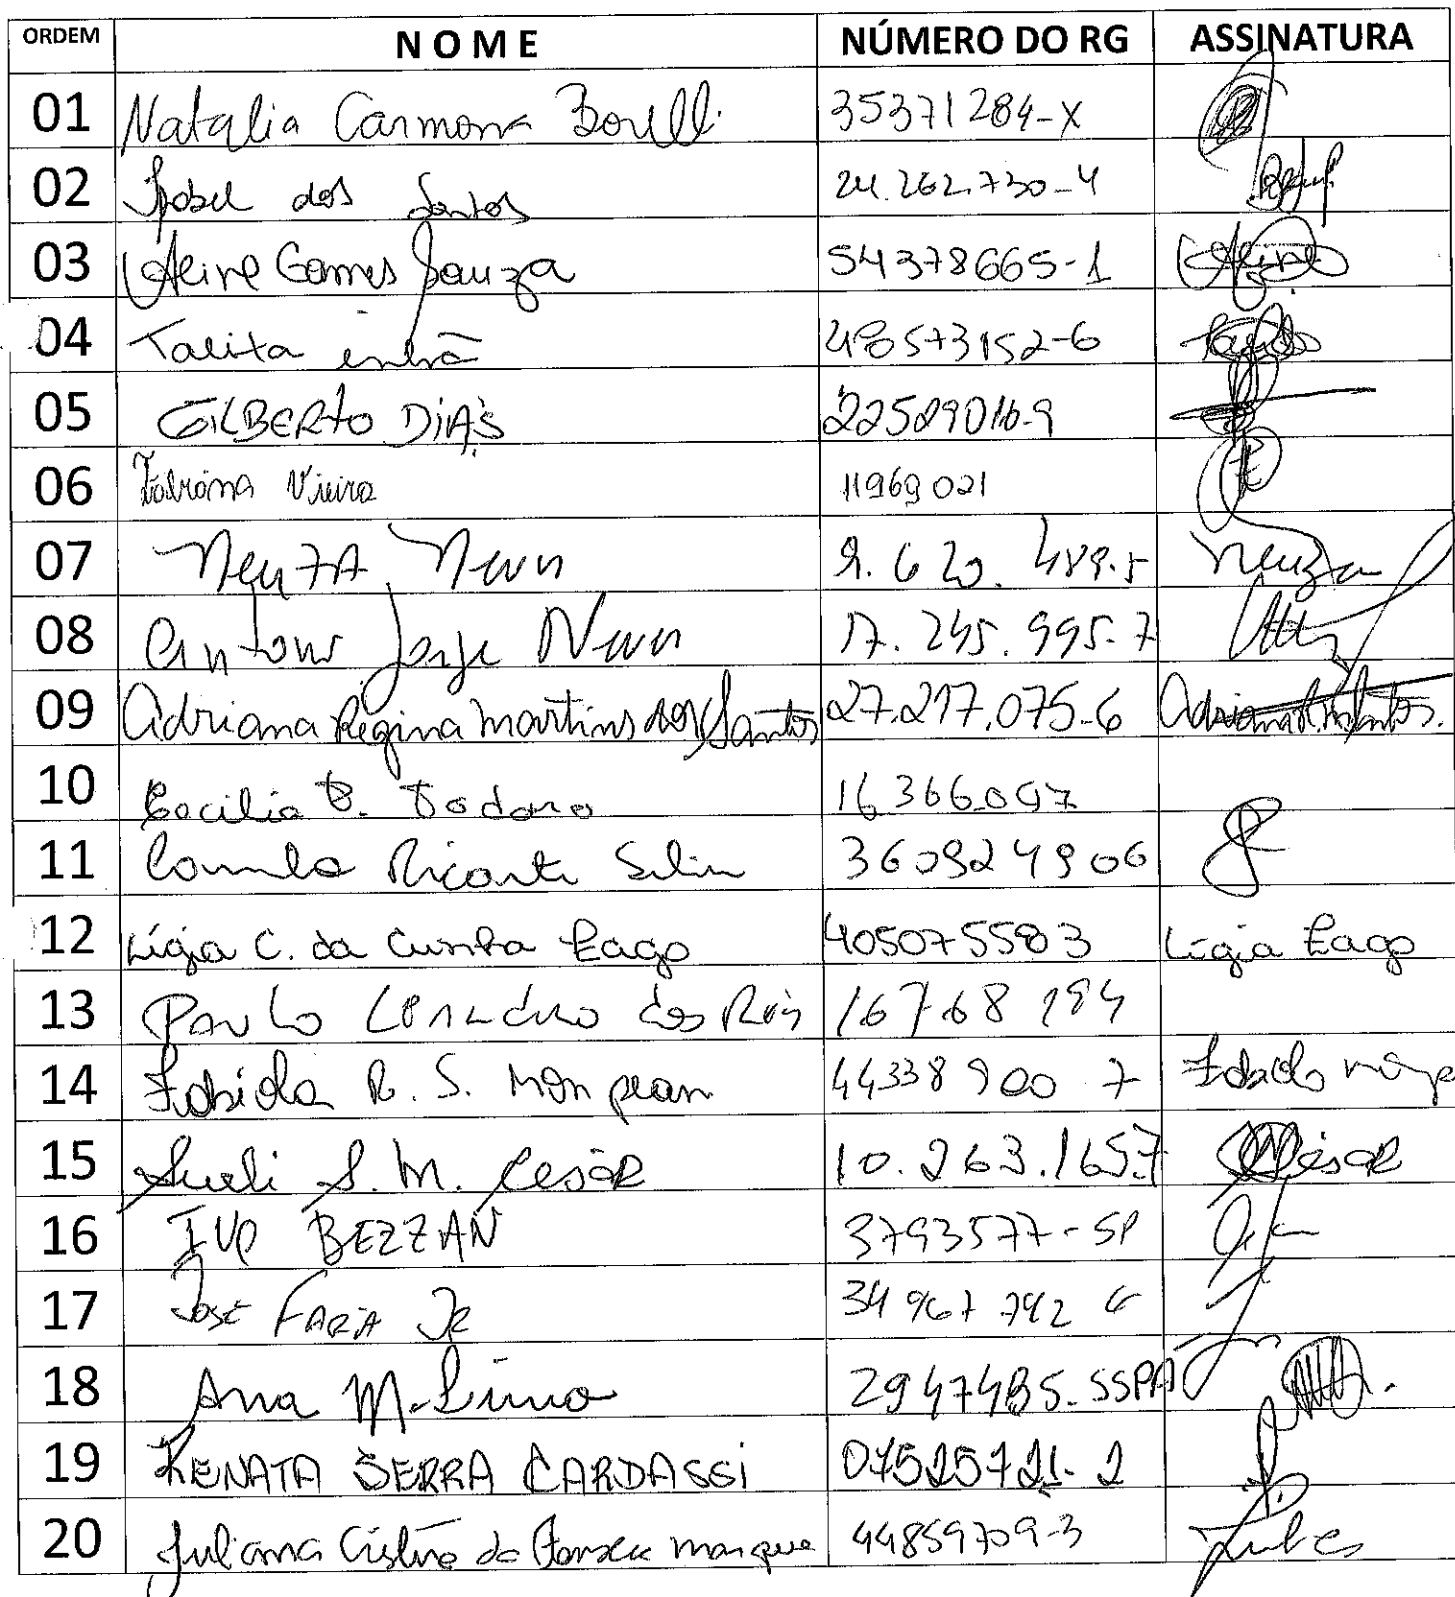 ORDEM NOME NÚMERO DO RG ASSINATURA
01 Natalia Carmona Borelli 35371284-X
02 Isabel dos Santos 24.262.730-4
03 Gomes Souza 54378665-1
04 Talita 48573152-6
05 GILBERTO DIAS 22529016-9
06 Fabiana Vieira 11969021
07 Neuza Neves 9.620.489-5 Neuza
08 Antonio Jorge Neves 17.245.995-7
09 Adriana Regina Martins dos Santos 27.217.075-6
10 Cecilia B. Todoro
11 Camila Ricarte 360924906
12 Lígia C. da Cunha Lago 4050755803 Lígia Lago
13 Paulo dos Reis
14 Fabiola R. S. Monpean 44338900 7 Fabiola
15 Sueli S. M. Cesar 10.263.165-7 César
16 IVO BEZZAN 3793577-SP
17 José FARIA JR 34967792
18 Ana M. Lima
19 RENATA SERRA CARDASSI 07525721-2
20 Juliana Cristina da Fonseca Marque 44859709-3